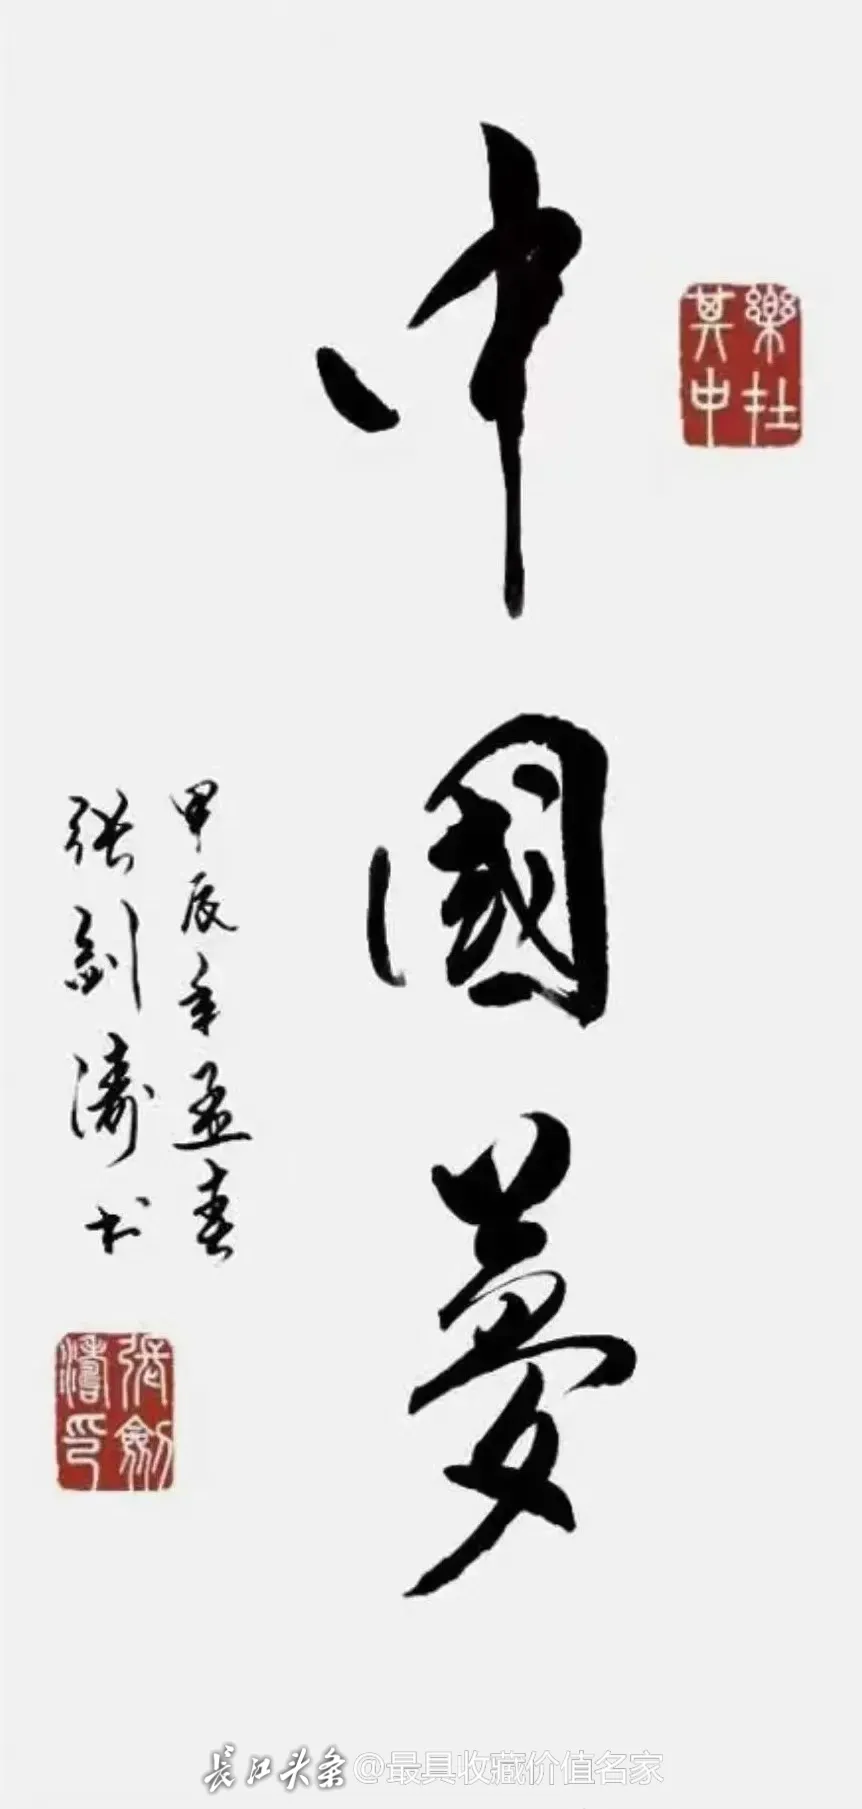 中國夢
樂在其中
甲辰年孟春
張劍濤书
張劍濤印
长江头条@最具收藏价值名家